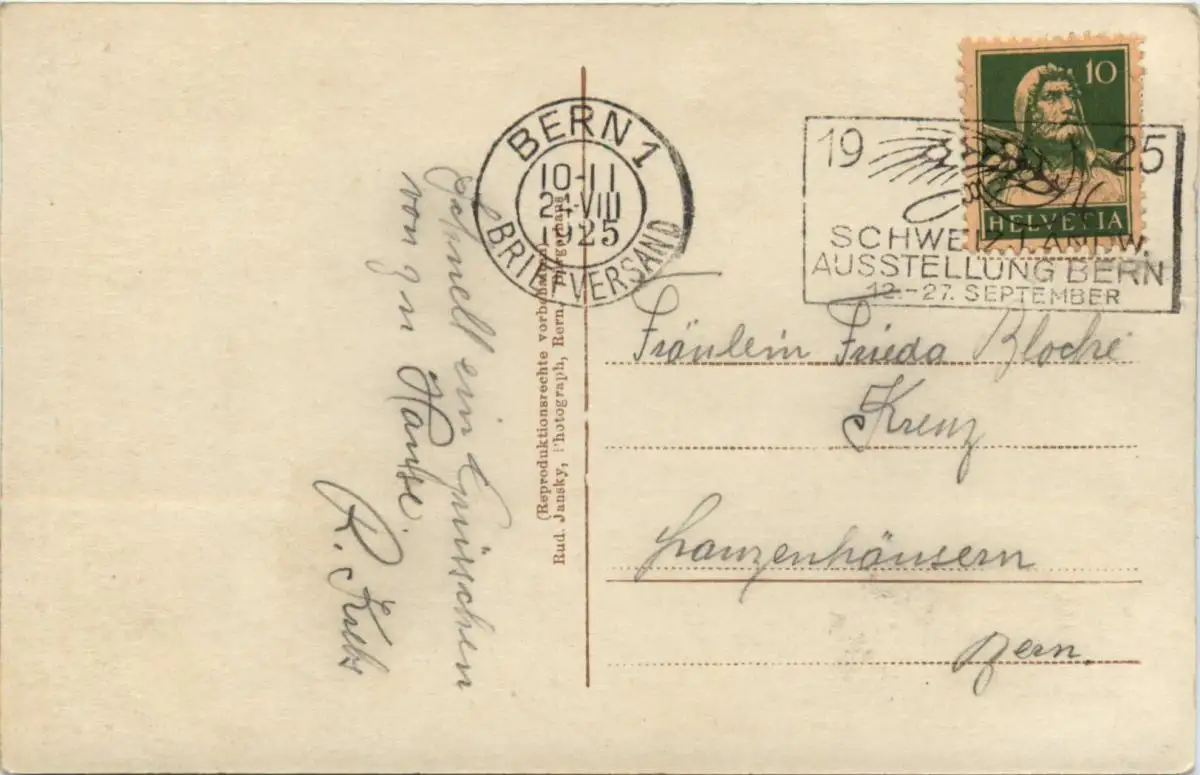 10
HELVETIA
19 25
SCHWEIZ. LANDW.
AUSSTELLUNG BERN
12.-27. SEPTEMBER
BERN 1
10-11
VIII
1925
BRIEFVERSAND
Fräulein Frieda
Kreuz
Ganzenhäusern
Bern.
(Reproduktionsrechte vorbehalten)
Rud. Jansky, Photograph, Bern, Bürgerhaus
Schnell ein
von zu Hause.
R.